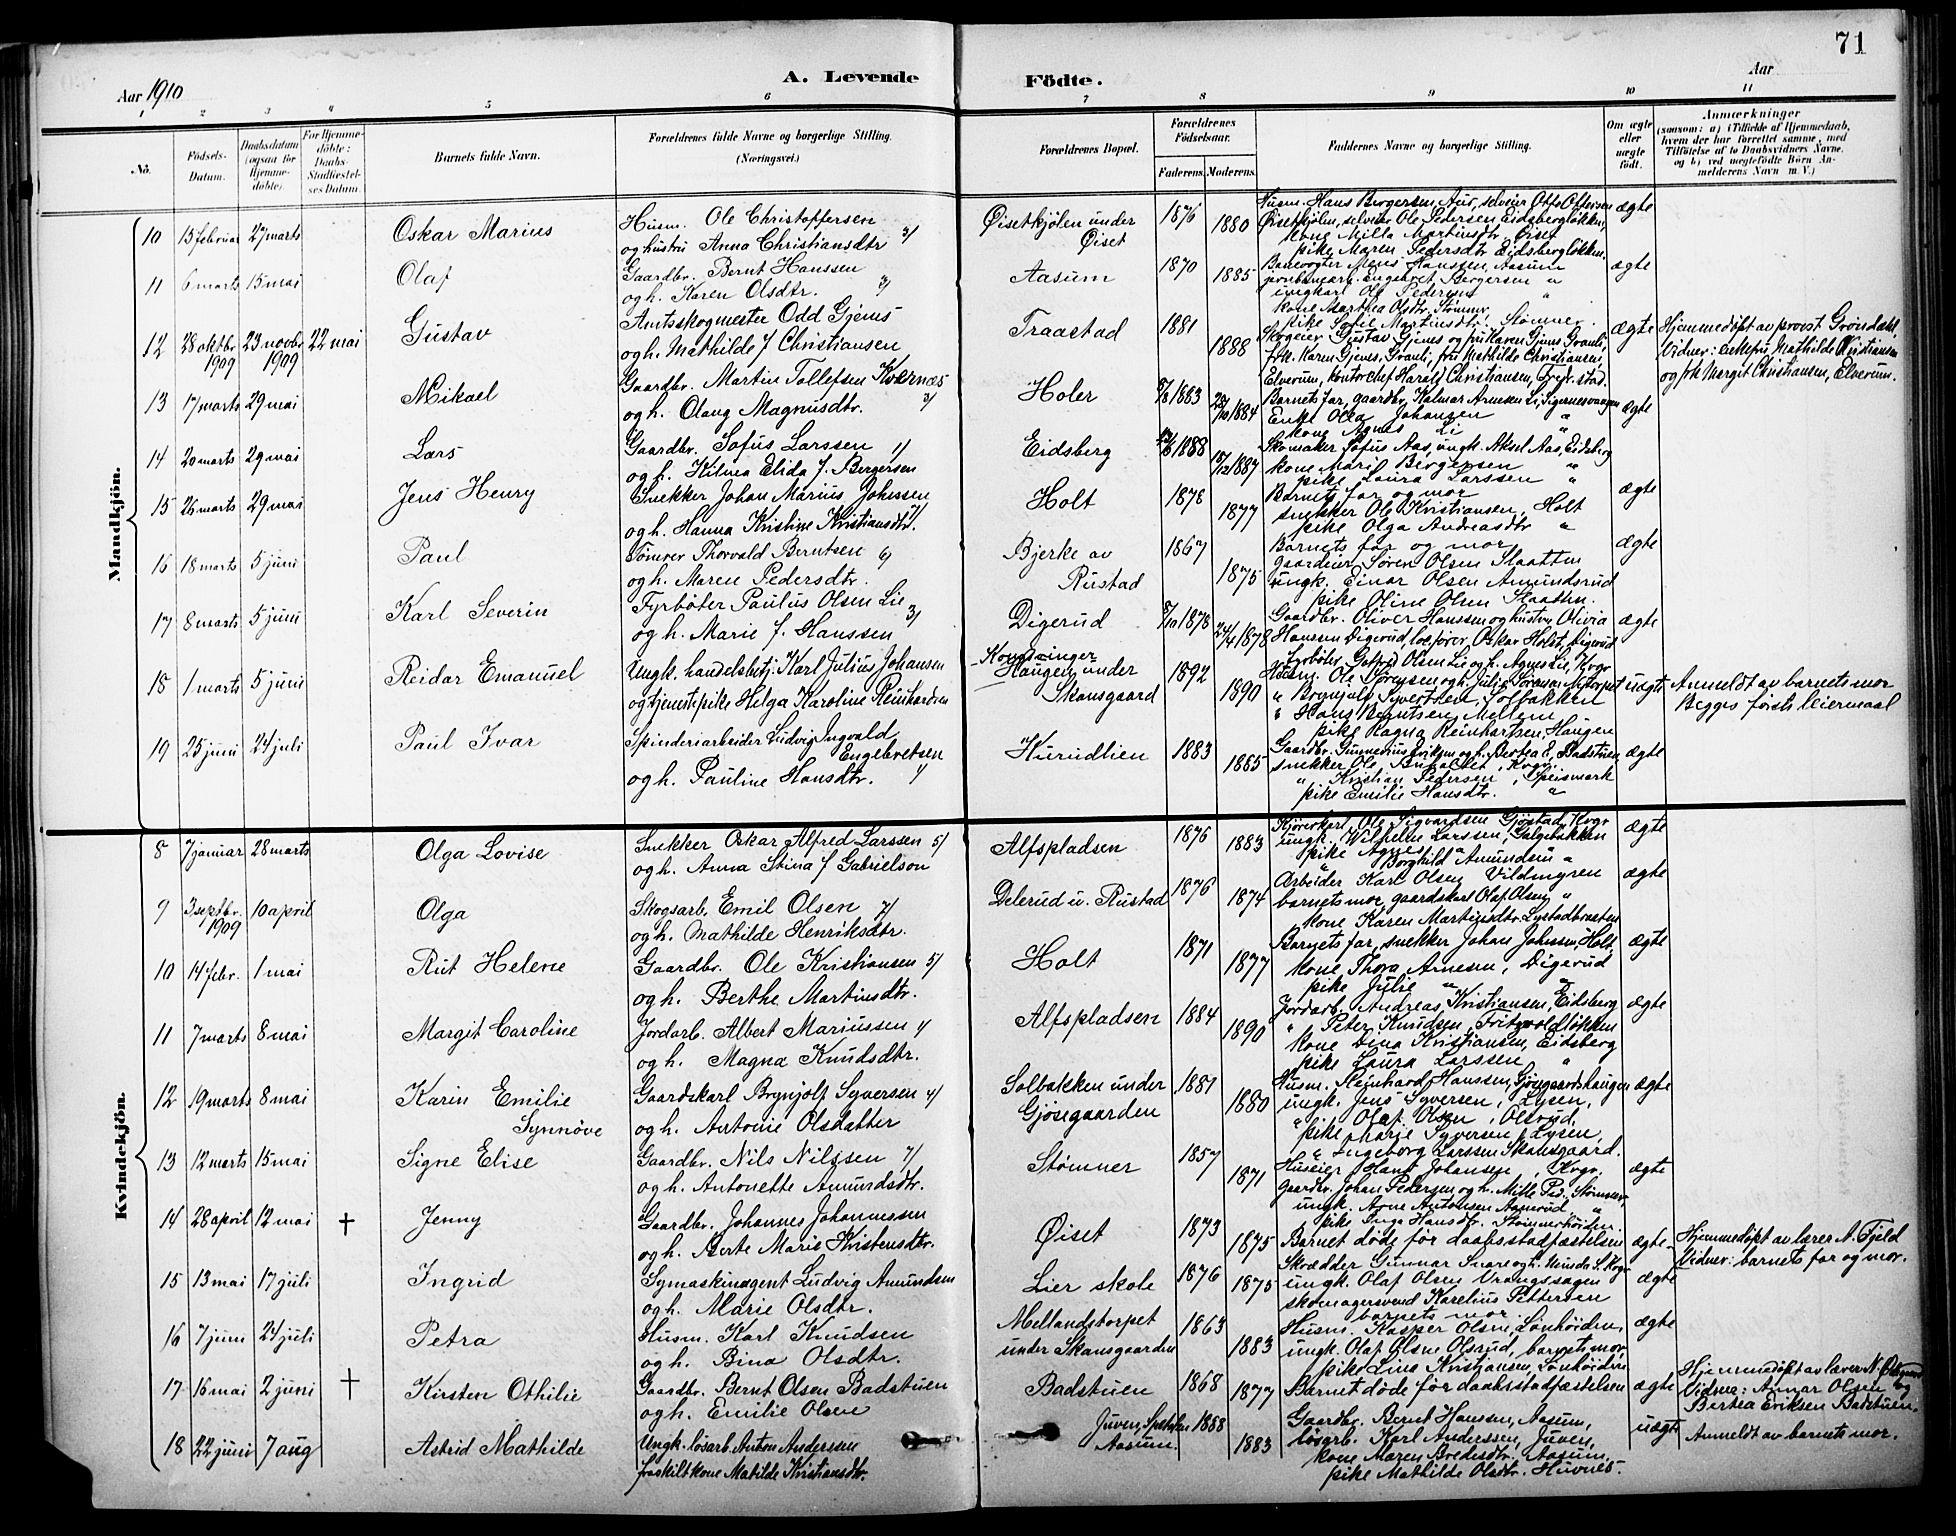 71
A. Levende Födte.
Aar 1910
Aar
1 2 3 4 5 6 7 8 9 10 11
No.
Födsels-Datum.
Daabsdatum (ogsaa for Hjemmedöbte).
For Hjemmedöbte: Daabs-Stadfæstelses Datum.
Barnets fulde Navn.
Forældrenes fulde Navne og borgerlige Stilling. (Næringsvei.)
Forældrenes Bopæl.
Forældrenes Födselsaar.
Faderens. Moderens.
Faddernes Navne og borgerlige Stilling.
Om ægte eller uægte født.
Anmærkninger
(saasom: a) i Tilfælde af Hjemmedaab, hvem der har forrettet samme, med Tilföielse af to Daabsvidners Navne, og b) ved uegtefödte Börn Anmelderens Navn m. V.)
Mandkjön.
10 13 februar 27 marts Oskar Marius Husm. Ole Christoffersen og hustru Anna Christiansdtr 3/ Øisetkjølen under Øiset 1876 1880 Husm. Hans Bergersen, Aur, selveier Otto Ottersen Øisetkjølen, selveier Ole Pedersen Eidsbergløkken, kone Milla Martinsdtr, Øiset pike Maren Pedersdtr Eidsbergløkken. ægte
11 6 marts 15 mai Olaf Gaardbr. Bernt Hanssen og h. Karen Olsdtr. Aasum 1870 1885 Banevogter Mens Hanssen, Aasum Engebret Bergersen " ungkarl Ole Pedersen " kone Marthea Olsdtr. Stømner, pike Sofie Martinsdtr. Stømner. ægte
12 28 oktbr 1909 23 novbr 1909 22 mai Gustav Amtsskogmester Odd Gjems og h. Mathilde f Christiansen Traastad 1881 1888 Skogeier Gustav Gjems og fru Karen Gjems, Granli, frk. Karen Gjems, Granli, fru Mathilde Christiansen, Elverum, kontorchef Harald Christiansen, Fredr.stad. ægte Hjemmedøpt av provst Grøndahl, Vidner: enkefru Mathilde Kristiansen og frk Margit Christiansen, Elverum.
13 17 marts 29 mai Mikael Gaardbr. Martin Tollefsen Kvernæs og h. Olaug Magnusdtr. 3/ Holer 8/8 1883 28/10 1884 Barnets far, gaardbr. Halmar Arnesen Li, Sigernesvangen Enke Olea Johansen " kone Agnes Li " ægte
14 20 marts 29 mai Lars Gaardbr. Sofus Larssen 1/ og h. Hilma Elida f. Bergersen Eidsberg 1888 1887 Skomaker Sofus Aas, ungk. Aksel Aas, Eidsberg kone Marie Bergersen " pike Laura Larssen "
15 26 marts 29 mai Jens Henry Snekker Johan Marius Johnssen og h. Hanna Kristine Kristiansdtr. Holt 1878 1877 Barnets far og mor snekker Ole Kristiansen, Holt pike Olga Andreasdtr " ægte
16 18 marts 5 juni Paul Tømrer Thorvald Berntsen 6/ og h. Maren Pedersdtr. Bjerke av Rustad 1867 1875 Barnets far og mor, gaardeier Søren Olsen Slaatten ungk. Einar Olsen Amundsrud pike Oline Olsen Slaatten. ægte
17 8 marts 5 juni Karl Severin Fyrbøter Paulus Olsen Lie 3/ og h. Marie f. Hanssen Digerud 8/10 1878 24/4 1878 Gaardbr. Oliver Hanssen og hustru Olivia Hanssen Digerud, lok.fører Oskar Holst, Digerud Fyrbøter Gotfred Olsen Lie og h. Agnes Lie, Kvgr ægte
18 1 marts 5 juni Reidar Emanuel Ungk. handelsbetj. Karl Julius Johansen og tjenestepike Helga Karoline Reinhardsen Kongsvinger Haugen under Skansgaard 1892 1890 Husm. Ole Sørensen og h. Julie Sørensen Nytorpet " Brynjulf Syvertsen, Solbakken " Hans Berntsen Mellem pike Ragna Reinhardsen, Haugen uægte Anmeldt av barnets mor Begges første leiermaal
19 25 juni 24 juli Paul Ivar Spinderiarbeider Ludvig Ingvald Engebretsen og h. Pauline Hansdtr. 1/ Kurudlien 1883 1885 Gaardbr. Gunnerius Eriksen og h. Bertea E. Badstuen snekker Ole " Kristian Pedersen, Speismark pike Emilie Hansdtr. " ægte
Kvindekjön.
8 7 januar 28 marts Olga Lovise Snekker Oskar Alfred Larssen 5/ og h. Anna Stina f Gabrielson Alfspladsen 1876 1883 Kjørerkarl Ole Sigvardsen Gjøstad, Kvgr ungk. Wilhelm Larssen, Galgebakken pike Agnes " " Borghild Amundsen " ægte
9 3 septbr. 1909 10 april Olga Skogsarb. Emil Olsen 7/ og h. Mathilde Henriksdtr. Delerud u. Rustad 1876 1874 Arbeider Karl Olsen, Vildmyren barnets mor, gaardskarl Olaf Olsen " kone Karen Martinsdtr. Lystadbraaten ægte
10 14 febr. 1 mai Rut Helene Gaardbr. Ole Kristiansen 5/ og h. Berthe Martinsdtr. Holt 1871 1877 Barnets far, snekker Johan Johnssen, Holt, kone Thora Arnesen, Digerud pike Julie " " ægte
11 7 marts 8 mai Margit Caroline Jordarb. Albert Mariussen 1/ og h. Magna Knudsdtr. Alfspladsen 1884 1890 Jordarb. Andreas Kristiansen, Eidsberg " Peter Knudsen, Fritzvoldløkken kone Dina Kristiansen, Eidsberg pike Laura Larssen " ægte
12 19 marts 8 mai Karin Emilie Synnøve Gaardskarl Brynjolf Syversen 4/ og h. Antonie Olsdatter Solbakken under Gjøsegaarden 1881 1880 Husm. Reinhard Hanssen, Gjøsgaardshaugen ungk. Jens Syversen, Lysen, " Olaf Olsen, Olsrud, pike Marie Syversen, Lysen, " Ingeborg Larssen Skansgaard. ægte
13 12 marts 15 mai Signe Elise Gaardbr. Nils Nilssen 7/ og h. Antonette Amundsdtr. Stømner 1857 1871 Huseier Hans Johansen, Kvgr. gaardbr. Johan Pedersen og h. Mille Ped. Stømner, ungk. Arne Antonsen Aamrud, " pike Inga Hansdtr. Stømnerhøiden. ægte
14 28 april 12 mai † Jenny Gaardbr. Johannes Johannessen og h. Berte Marie Kristensdtr. Øiset 1873 1875 Barnet døde før daabsstadfæstelsen ægte Hjemmedøpt av lærer N. Fjeld Vidner: barnets far og mor.
15 13 mai 17 juli Ingrid Symaskinagent Ludvig Amundsen og h. Marie Olsdtr. Lier skole 1876 1875 Skrædder Gunnar Snare og h. Minda S. Kvgr ungk. Olaf Olsen Vrangssagen skomagersvend Karelius Pettersen barnets mor ægte
16 7 juni 24 juli Petra Husm. Karl Knudsen og h. Bina Olsdtr. Mellandstorpet under Skansgaarden 1863 1883 Husm. Kasper Olsen, Lønhøiden, ungk. Olaf Olsen Olsrud, barnets mor, pike Lina Kristiansen, Lønhøiden ægte
17 16 mai 2 juni † Kirsten Othilie Gaardbr. Bernt Olsen Badstuen og h. Emilie Olsen Badstuen 1868 1877 Barnet døde før daabsstadfæstelsen ægte Hjemmedøpt av lærer N. Vidner: Annar Olsen og Bertea Eriksen Badstuen.
18 22 juni 7 aug Astrid Mathilde Ungk. løsarb. Anton Anderssen fraskilt kone Matilde Kristiansdtr. Juven, Spetalen Aasum. 1888 1883 Gaardbr. Bernt Hanssen, Aasum, løsarb. Karl Anderssen, Juven, kone Maren Bredesdtr. Aasum, pike Mathilde Olsdtr. Huvnes. uægte Anmeldt av barnets mor.